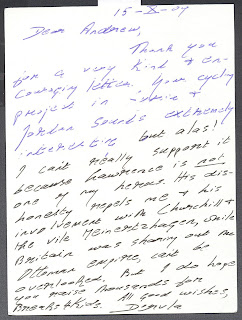 15-X-07
Dear Andrew,
Thank you
for a very kind & en-
couraging letter. Your cycling
project in Syria &
Jordan sounds extremely
interesting but alas!
I can't really support it
because Lawrence is not
one of my heroes. His dis-
honesty repels me & his
involvement with Churchill &
the vile Meinertzhagen, while
Britain was sharing out the
Ottoman empire, can't be
overlooked. But I do hope
you raise thousands for
Breaks4Kids. All good wishes,
Dervla